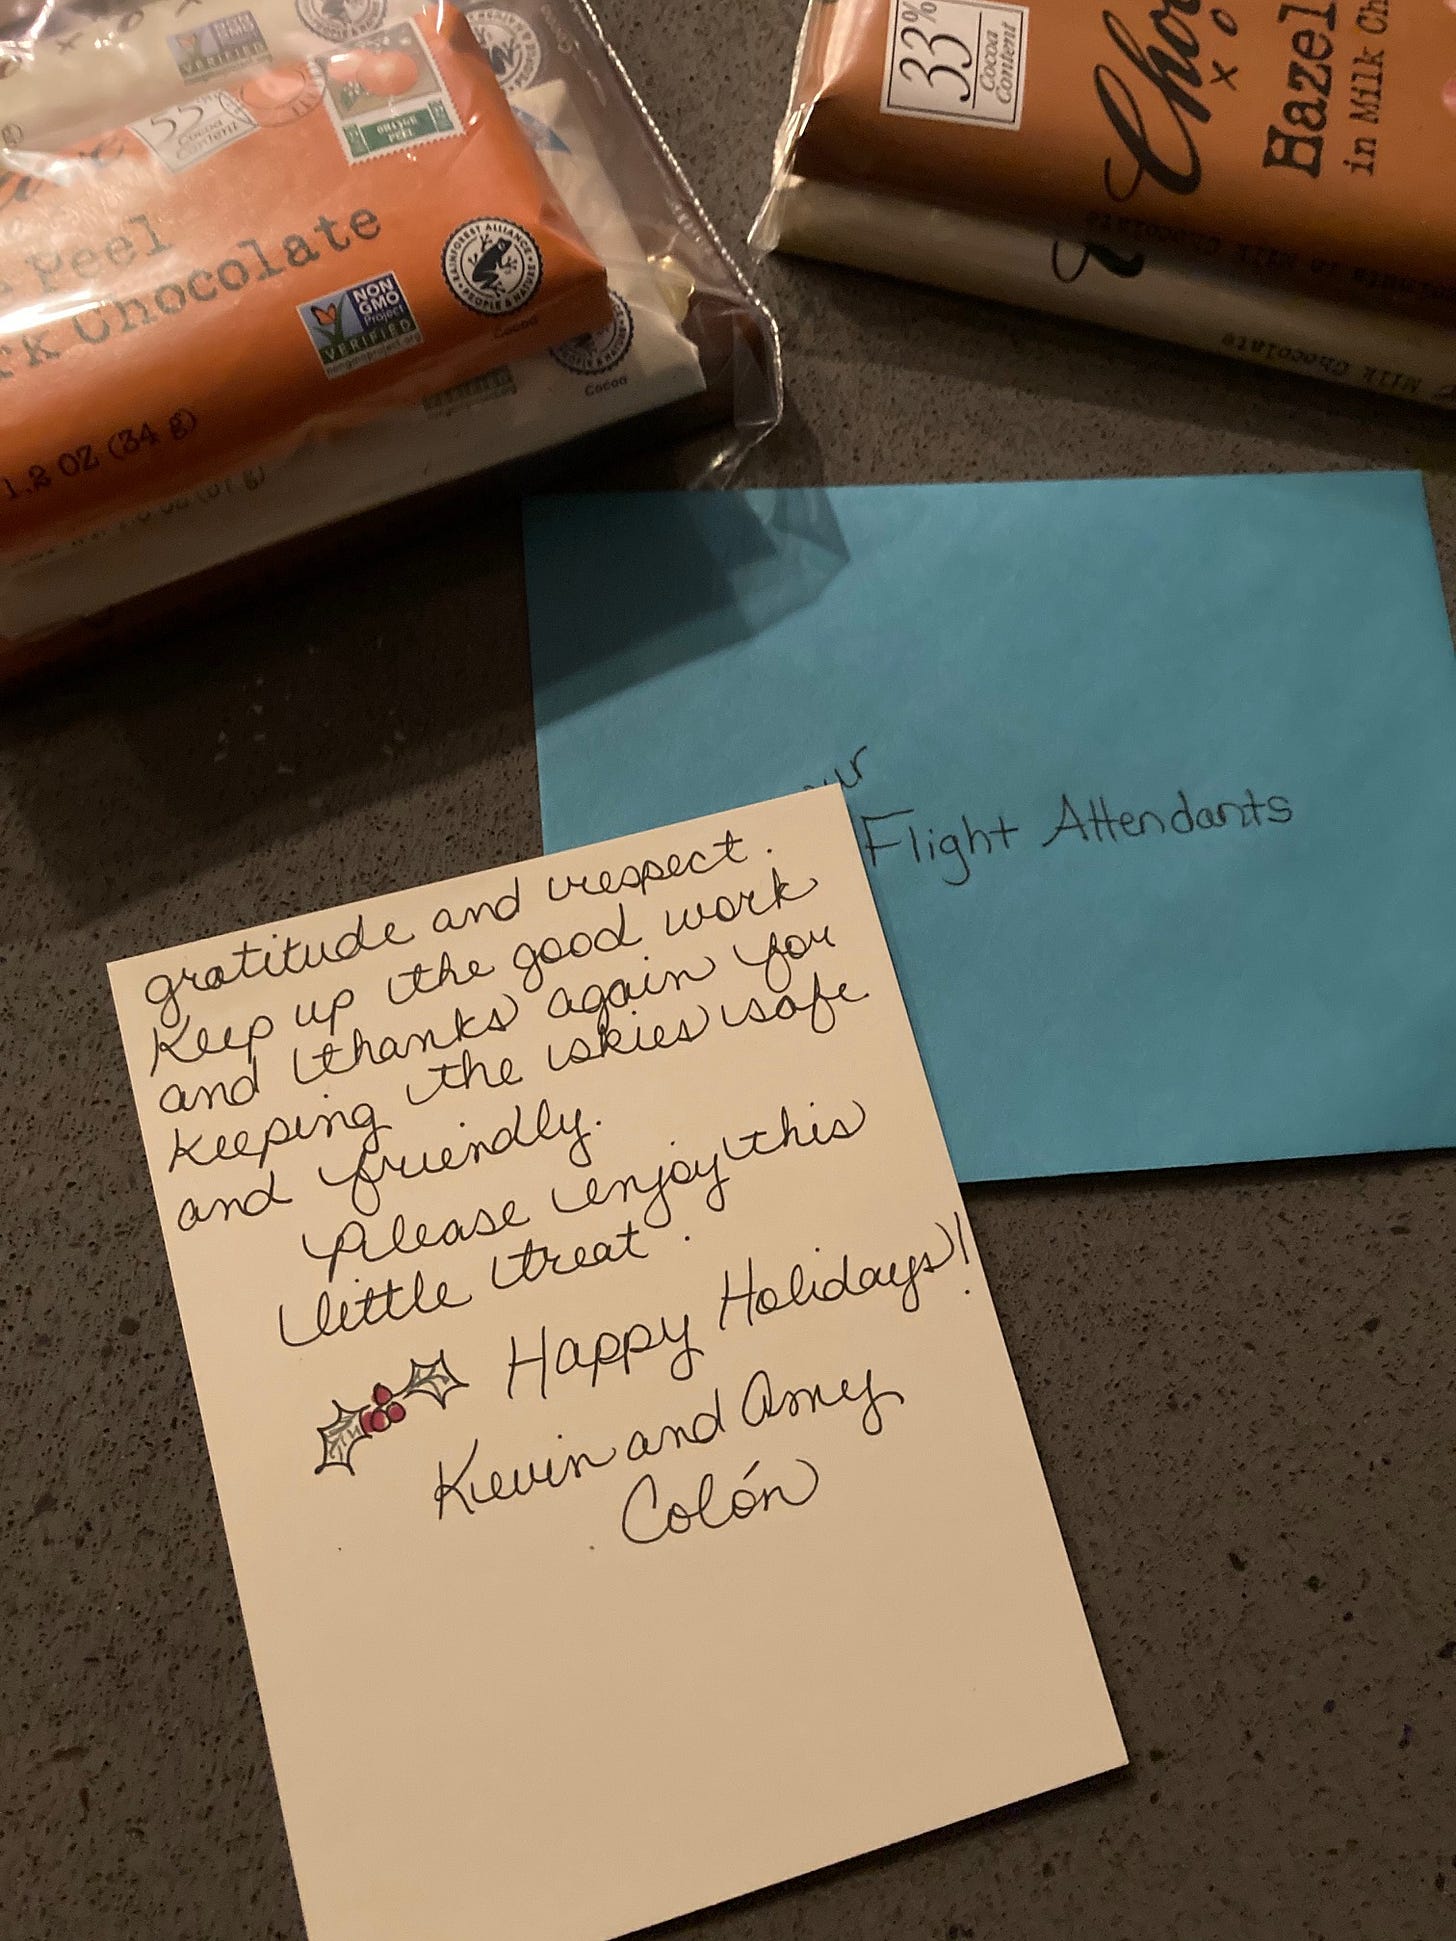 NON GMO
VERIFIED
55%
Cocoa
Content
ORANGE
PEEL
Peel
Chocolate
NON
GMO
Project
VERIFIED
nongmoproject.org
RAINFOREST ALLIANCE
PEOPLE & NATURE
Cocoa
PEOPLE & NATURE
Cocoa
1.2 OZ (34 g)
33%
Cocoa
Content
Hazel
in Milk Ch
Milk Chocolate
Flight Attendants
gratitude and respect.
Keep up the good work
and thanks again for
keeping the skies safe
and friendly.
Please enjoy this
little treat.
Happy Holidays!
Kevin and Amy
Colón